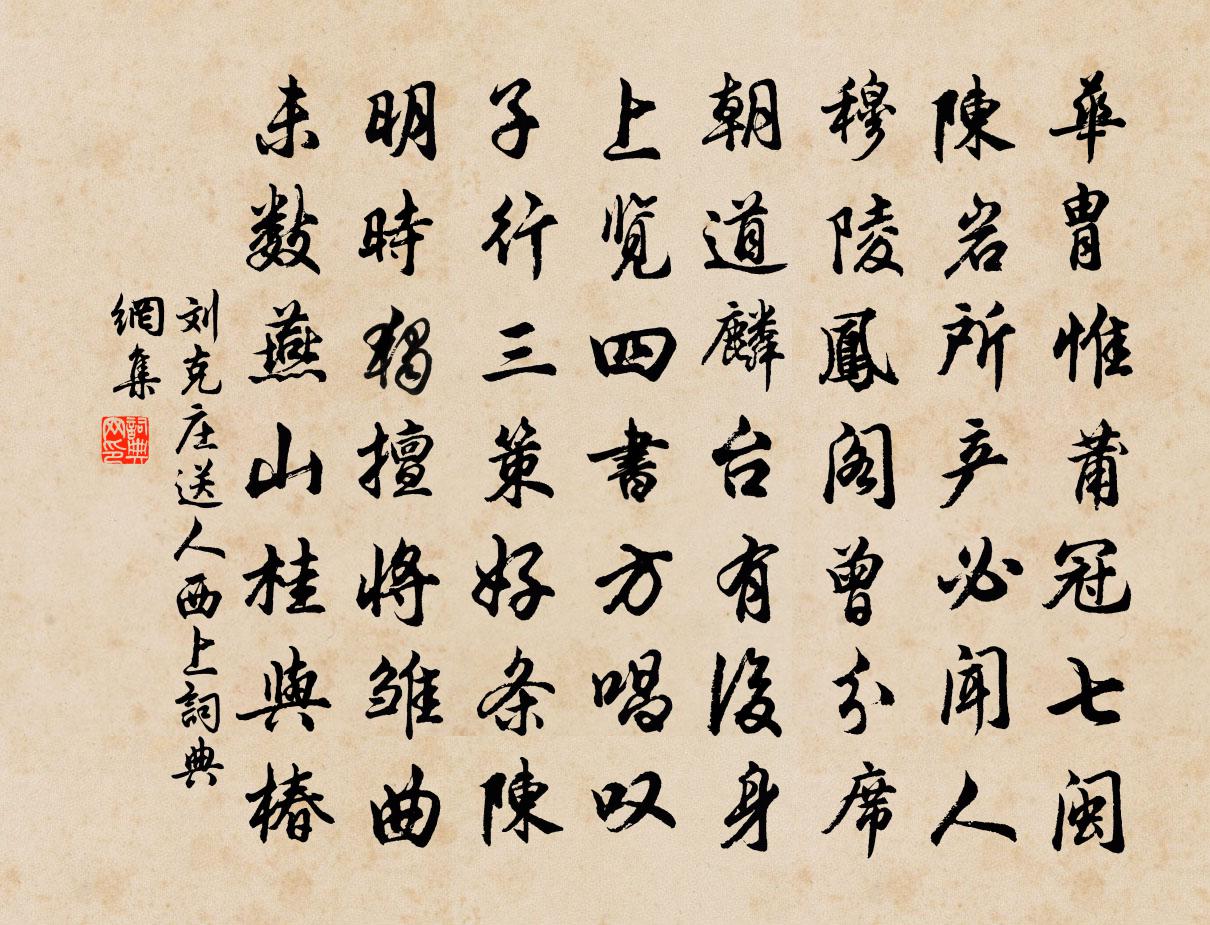 華胄惟莆冠七闽
陳岩所产必闻人
穆陵鳳阁曾分席
朝道麟台有後身
上览四書方唱叹
子行三策好条陳
明時独擅将雏曲
未数燕山桂與椿
刘克庄送人西上詞典
網集
詞典网印